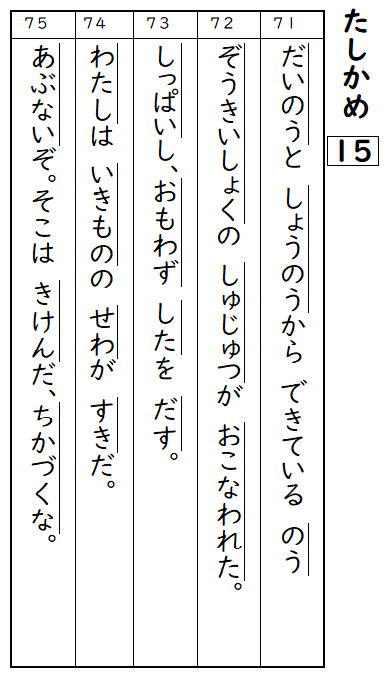 たしかめ
15
71
だいのうと しょうのうから できている のう
72
ぞうきいしょくの しゅじゅつが おこなわれた。
73
しっぱいし、おもわず したを だす。
74
わたしは いきものの せわが すきだ。
75
あぶないぞ。そこは きけんだ、ちかづくな。